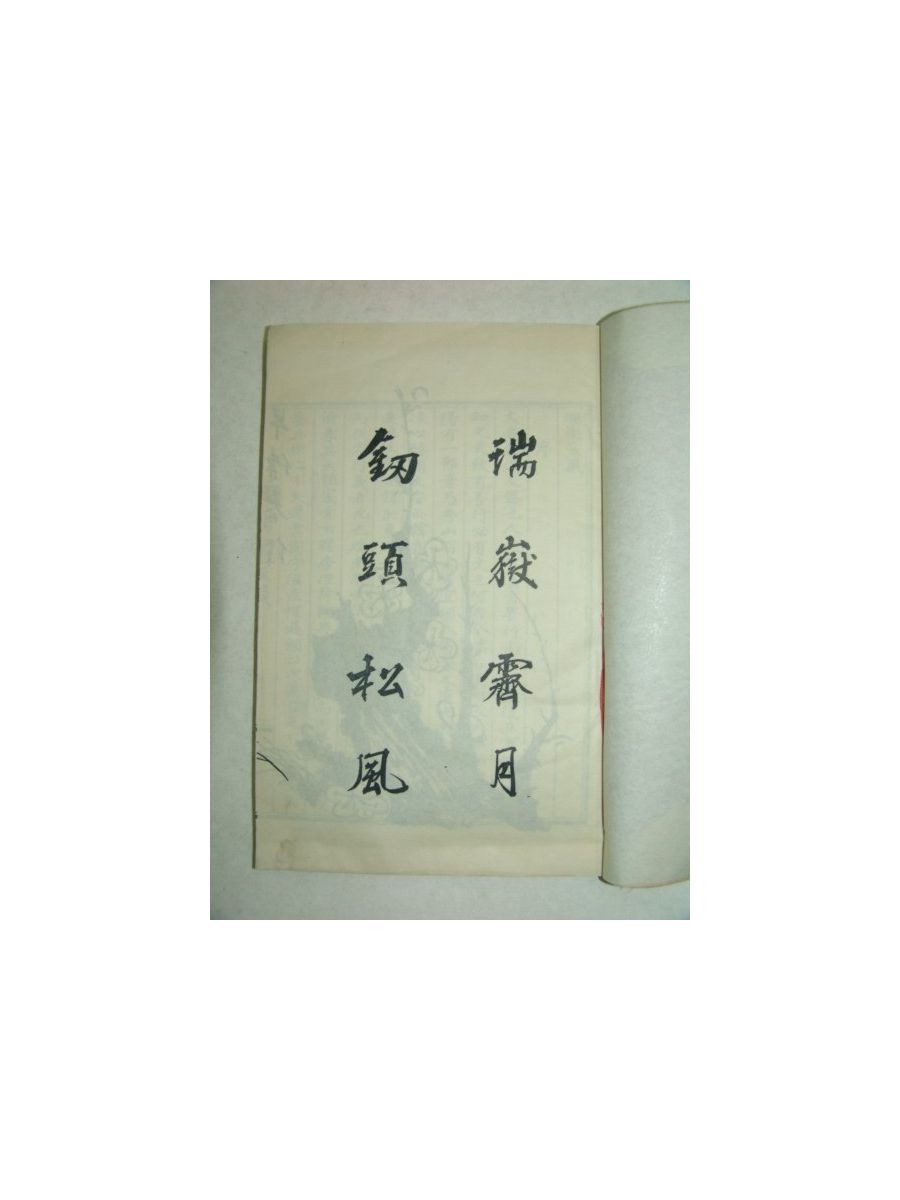 瑞嶽霽月
釼頭松風